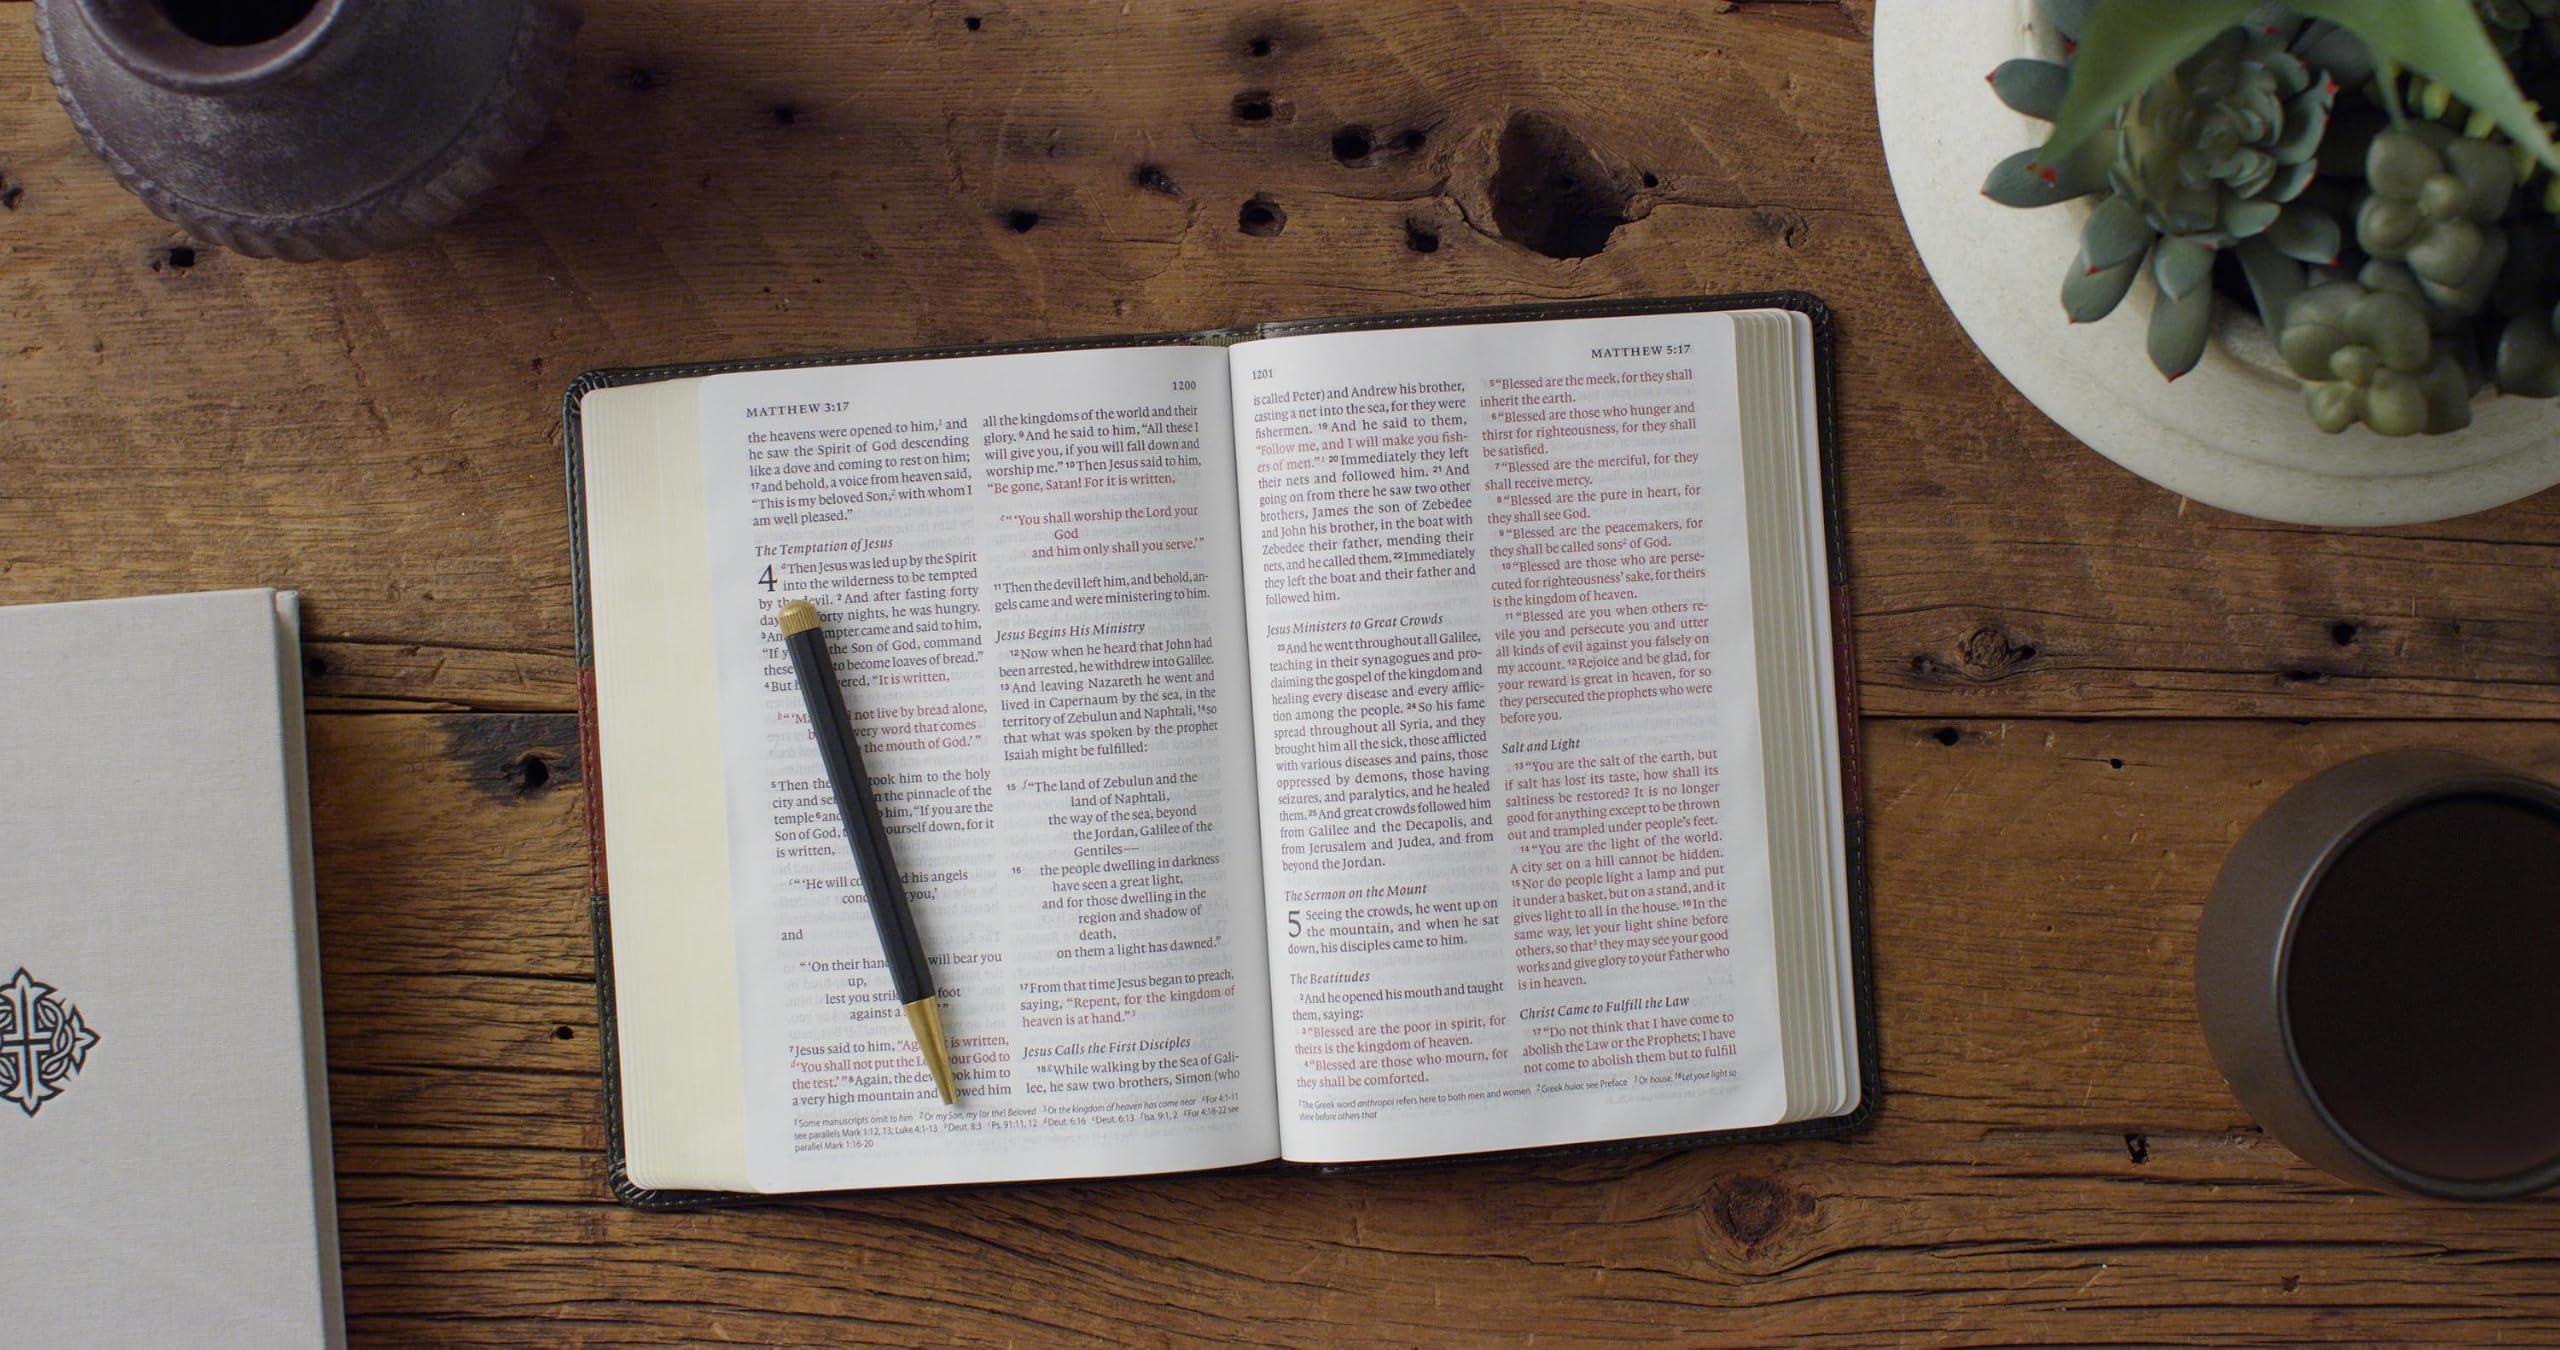 MATTHEW 3:17
1200
the heavens were opened to him,¹ and
he saw the Spirit of God descending
like a dove and coming to rest on him;
17 and behold, a voice from heaven said,
“This is my beloved Son,² with whom I
am well pleased.”
The Temptation of Jesus
4 a Then Jesus was led up by the Spirit
into the wilderness to be tempted
by evil. 2 And after fasting forty
forty nights, he was hungry.
3 came and said to him,
“If the Son of God, command
these to become loaves of bread.”
4 But “It is written,
b “‘ not live by bread alone,
very word that comes
the mouth of God.’”
5 Then the took him to the holy
city and the pinnacle of the
temple 6 and him, “If you are the
Son of God, yourself down, for it
is written,
c “‘He will his angels
you,’
and
“‘On their will bear you
up,
lest you foot
against a
7 Jesus said to him, is written,
d ‘You shall not put the your God to
the test.’” 8 Again, the took him to
a very high mountain and him
all the kingdoms of the world and their
glory. 9 And he said to him, “All these I
will give you, if you will fall down and
worship me.” 10 Then Jesus said to him,
“Be gone, Satan! For it is written,
“‘You shall worship the Lord your
God
and him only shall you serve.’”
11 Then the devil left him, and behold, an-
gels came and were ministering to him.
Jesus Begins His Ministry
12 Now when he heard that John had
been arrested, he withdrew into Galilee.
13 And leaving Nazareth he went and
lived in Capernaum by the sea, in the
territory of Zebulun and Naphtali, 14 so
that what was spoken by the prophet
Isaiah might be fulfilled:
15 f “The land of Zebulun and the
land of Naphtali,
the way of the sea, beyond
the Jordan, Galilee of the
Gentiles—
16 the people dwelling in darkness
have seen a great light,
and for those dwelling in the
region and shadow of
death,
on them a light has dawned.”
17 From that time Jesus began to preach,
saying, “Repent, for the kingdom of
heaven is at hand.”³
Jesus Calls the First Disciples
18 g While walking by the Sea of Gali-
lee, he saw two brothers, Simon (who
1 Some manuscripts omit to him 2 Or my Son, my (or the) Beloved 3 Or the kingdom of heaven has come near a For 4:1-11
see parallels Mark 1:12, 13; Luke 4:1-13 Deut. 8:3 c Ps. 91:11, 12 d Deut. 6:16 Deut. 6:13 f Isa. 9:1, 2 g For 4:18-22 see
parallel Mark 1:16-20
1201
MATTHEW 5:17
is called Peter) and Andrew his brother,
casting a net into the sea, for they were
fishermen. 19 And he said to them,
“Follow me, and I will make you fish-
ers of men.”¹ 20 Immediately they left
their nets and followed him. 21 And
going on from there he saw two other
brothers, James the son of Zebedee
and John his brother, in the boat with
Zebedee their father, mending their
nets, and he called them. 22 Immediately
they left the boat and their father and
followed him.
Jesus Ministers to Great Crowds
23 And he went throughout all Galilee,
teaching in their synagogues and pro-
claiming the gospel of the kingdom and
healing every disease and every afflic-
tion among the people. 24 So his fame
spread throughout all Syria, and they
brought him all the sick, those afflicted
with various diseases and pains, those
oppressed by demons, those having
seizures, and paralytics, and he healed
them. 25 And great crowds followed him
from Galilee and the Decapolis, and
from Jerusalem and Judea, and from
beyond the Jordan.
The Sermon on the Mount
5 Seeing the crowds, he went up on
the mountain, and when he sat
down, his disciples came to him.
The Beatitudes
2 And he opened his mouth and taught
them, saying:
3 “Blessed are the poor in spirit, for
theirs is the kingdom of heaven.
4 “Blessed are those who mourn, for
they shall be comforted.
5 “Blessed are the meek, for they shall
inherit the earth.
6 “Blessed are those who hunger and
thirst for righteousness, for they shall
be satisfied.
7 “Blessed are the merciful, for they
shall receive mercy.
8 “Blessed are the pure in heart, for
they shall see God.
9 “Blessed are the peacemakers, for
they shall be called sons² of God.
10 “Blessed are those who are perse-
cuted for righteousness’ sake, for theirs
is the kingdom of heaven.
11 “Blessed are you when others re-
vile you and persecute you and utter
all kinds of evil against you falsely on
my account. 12 Rejoice and be glad, for
your reward is great in heaven, for so
they persecuted the prophets who were
before you.
Salt and Light
13 “You are the salt of the earth, but
if salt has lost its taste, how shall its
saltiness be restored? It is no longer
good for anything except to be thrown
out and trampled under people’s feet.
14 “You are the light of the world.
A city set on a hill cannot be hidden.
15 Nor do people light a lamp and put
it under a basket, but on a stand, and it
gives light to all in the house. 16 In the
same way, let your light shine before
others, so that³ they may see your good
works and give glory to your Father who
is in heaven.
Christ Came to Fulfill the Law
17 “Do not think that I have come to
abolish the Law or the Prophets; I have
not come to abolish them but to fulfill
1 The Greek word anthropoi refers here to both men and women 2 Greek huioi; see Preface 3 Or house. 16 Let your light so
shine before others that